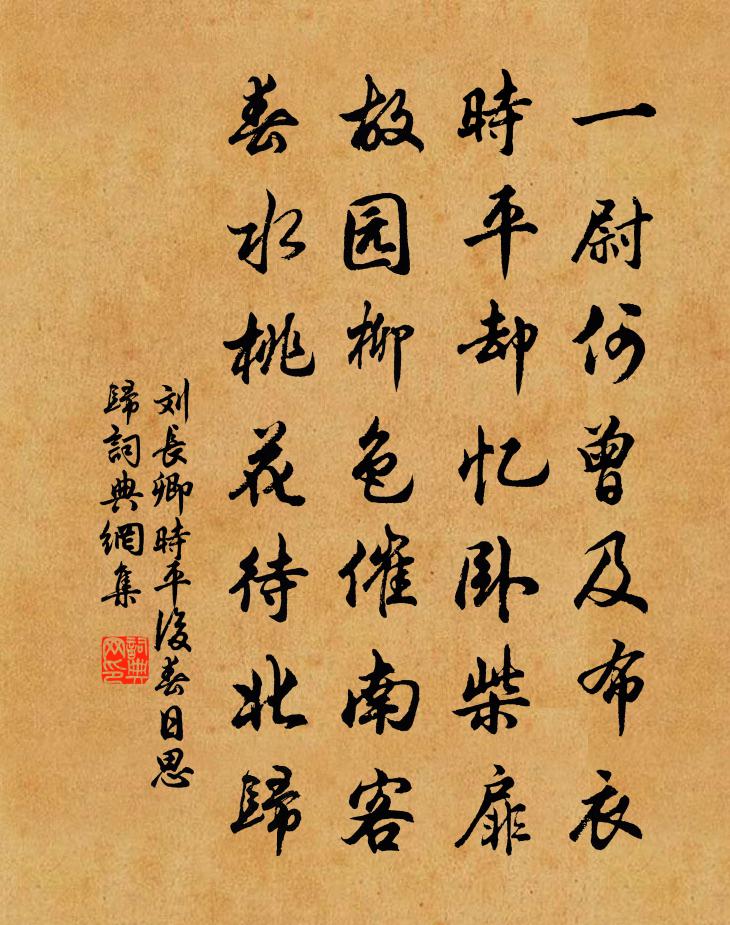 一尉何曾及布衣
時平却忆卧柴扉
故园柳色催南客
春水桃花待北歸
刘長卿時平後春日思
歸詞典網集
詞典
网印